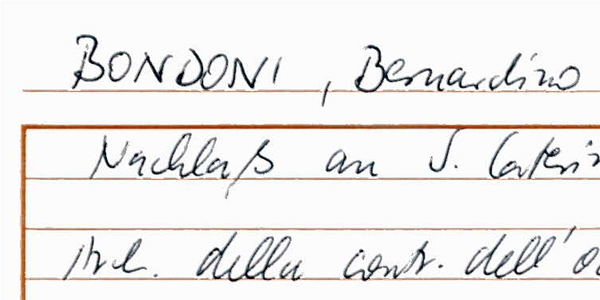 BONDONI, Bernardino
Nachlaß an S. Caterin
della contr. dell'o